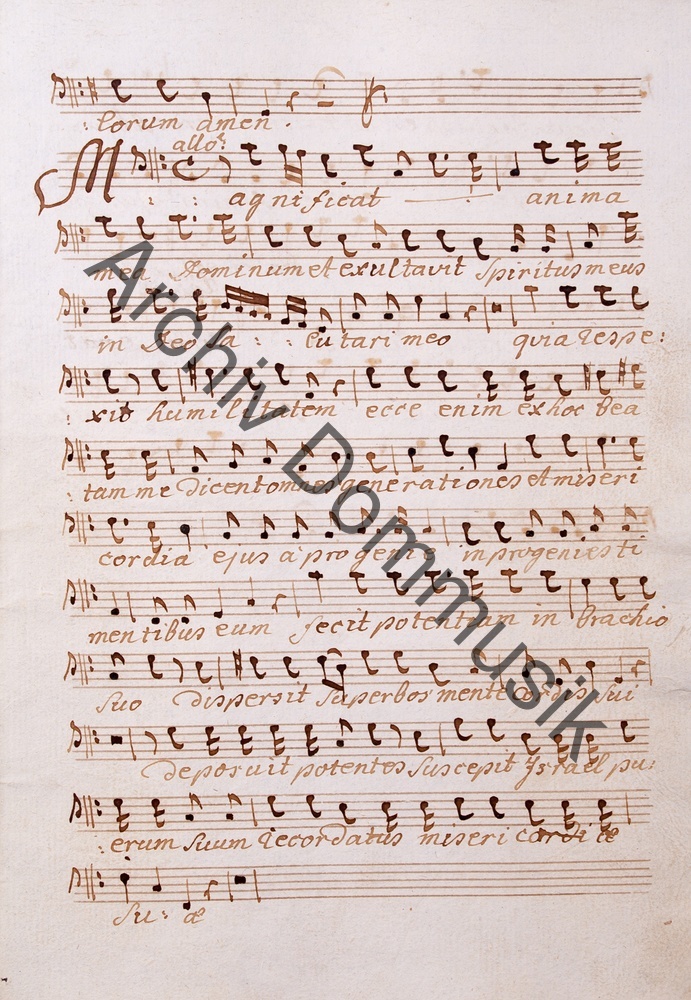 lorum amen.
allo:
Magnificat anima
mea Dominum et exultavit Spiritus meus
in Deo Sa: : lutari meo quia respe:
: xit humilitatem ecce enim ex hoc bea
: tam me dicent omnes generationes et miseri
cordia ejus a progenie in progenies ti
mentibus eum fecit potentiam in brachio
suo dispersit superbos mente cordis sui
deposuit potentes Suscepit Israel pu:
: erum suum recordatus misericordiæ
su: æ
Archiv Dommusik